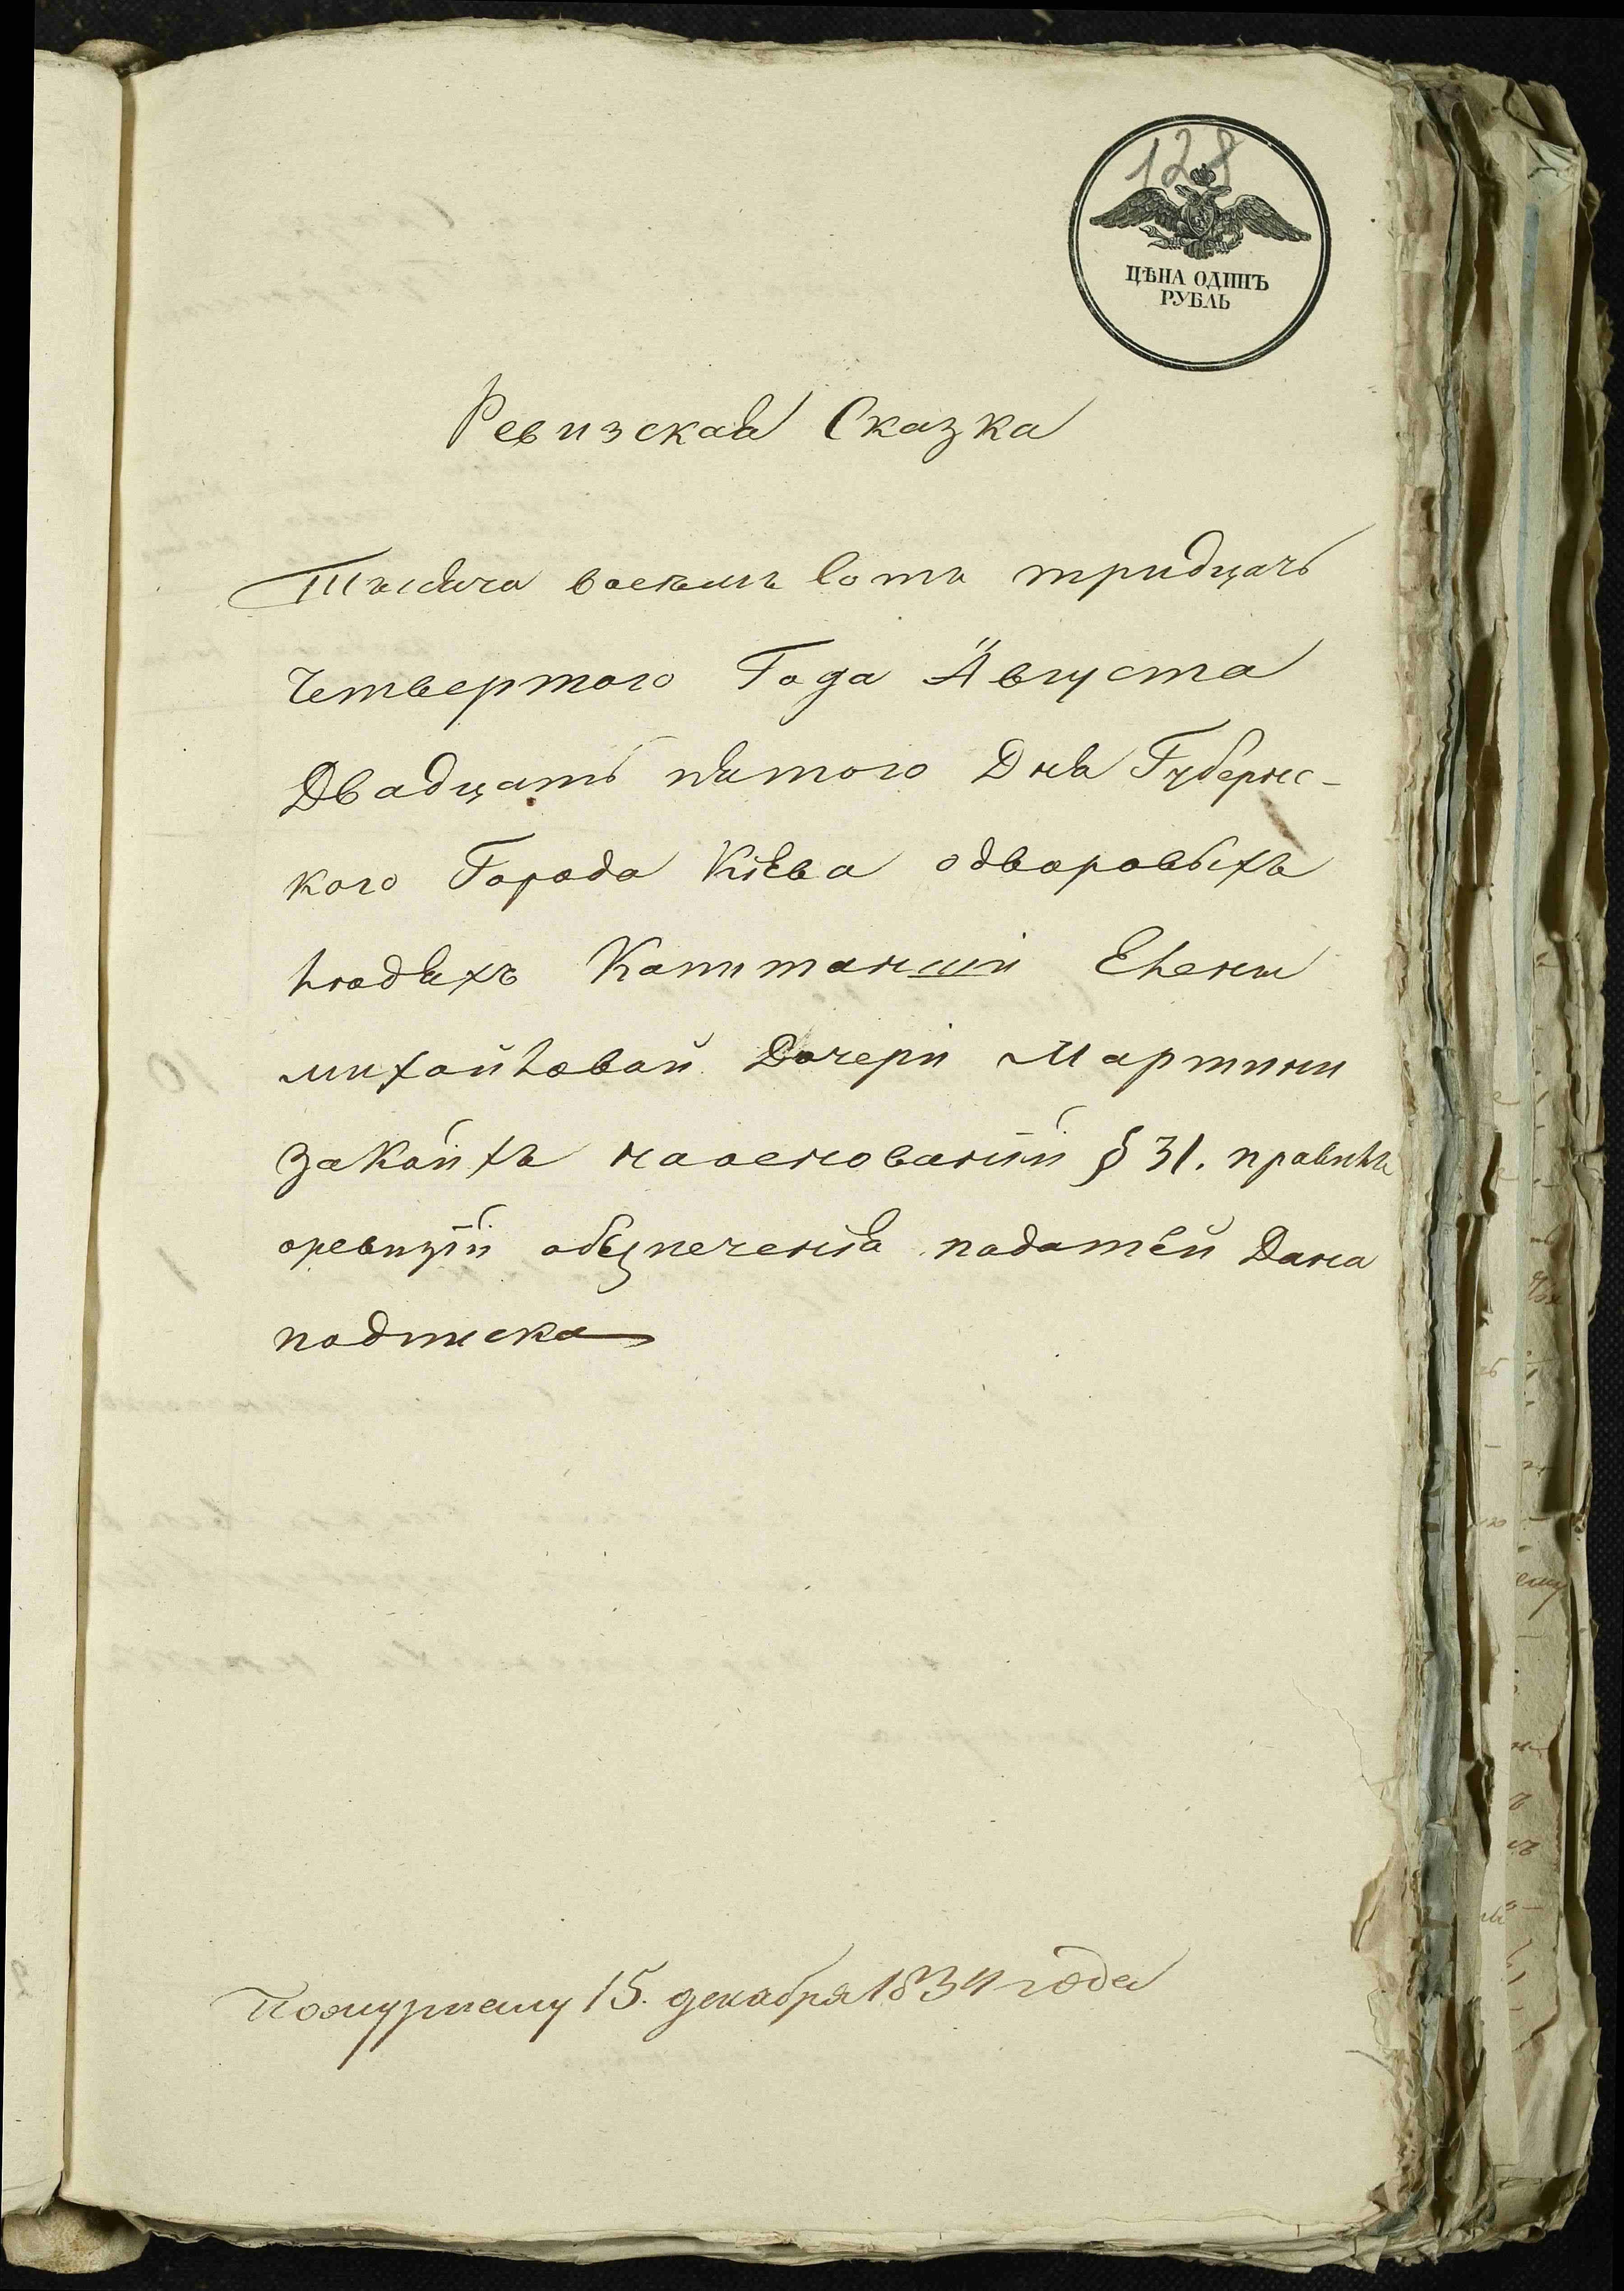 128
ЦѢНА ОДИНЪ
РУБЛЬ
Ревизская Сказка
Тысяча восемь сотъ тридцать
четвертого Года Августа
Двадцать пятого Дня Губернс-
кого Города Кіева одворовыхъ
людяхъ Капитанши Елены
михайловой Дочери Мартини
закоихъ наоснованіи § 31. правилъ
оревизіи обезпеченія податей Дана
подписка
15. декабря 1834 года